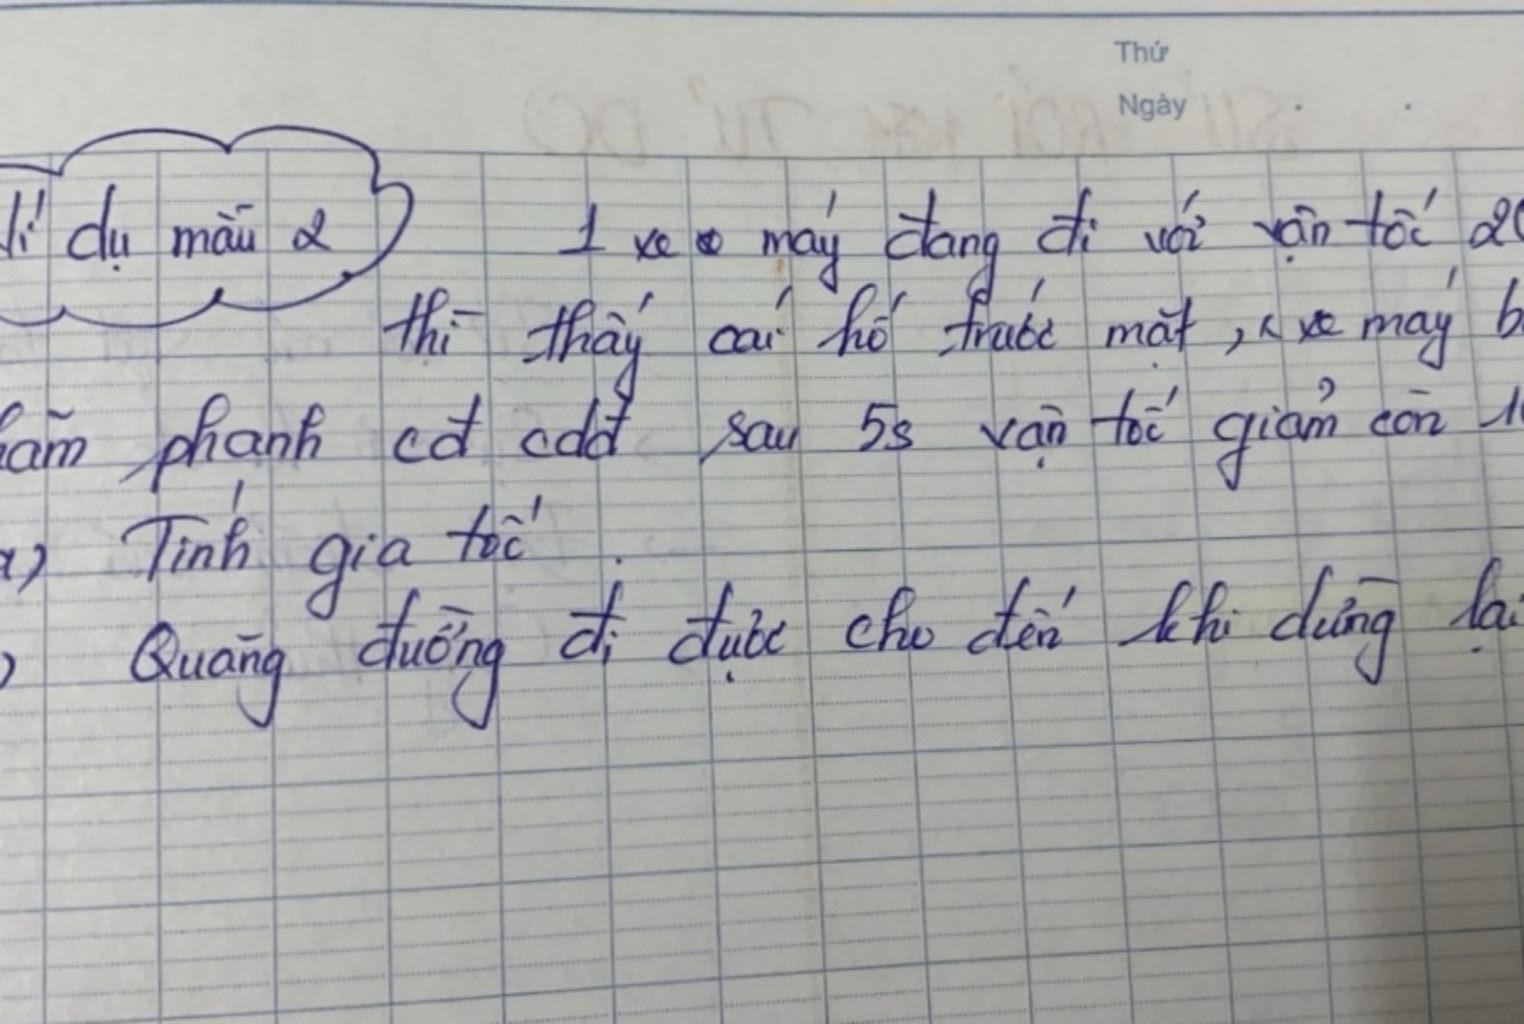 Thứ
Ngày
Ví dụ mẫu 2
1 xe máy đang đi với vận tốc
thì thấy cái hố trước mặt, xe máy
hãm phanh cđ cdđ sau 5s vận tốc giảm còn
a) Tính gia tốc.
) Quãng đường đi được cho đến khi dừng lại